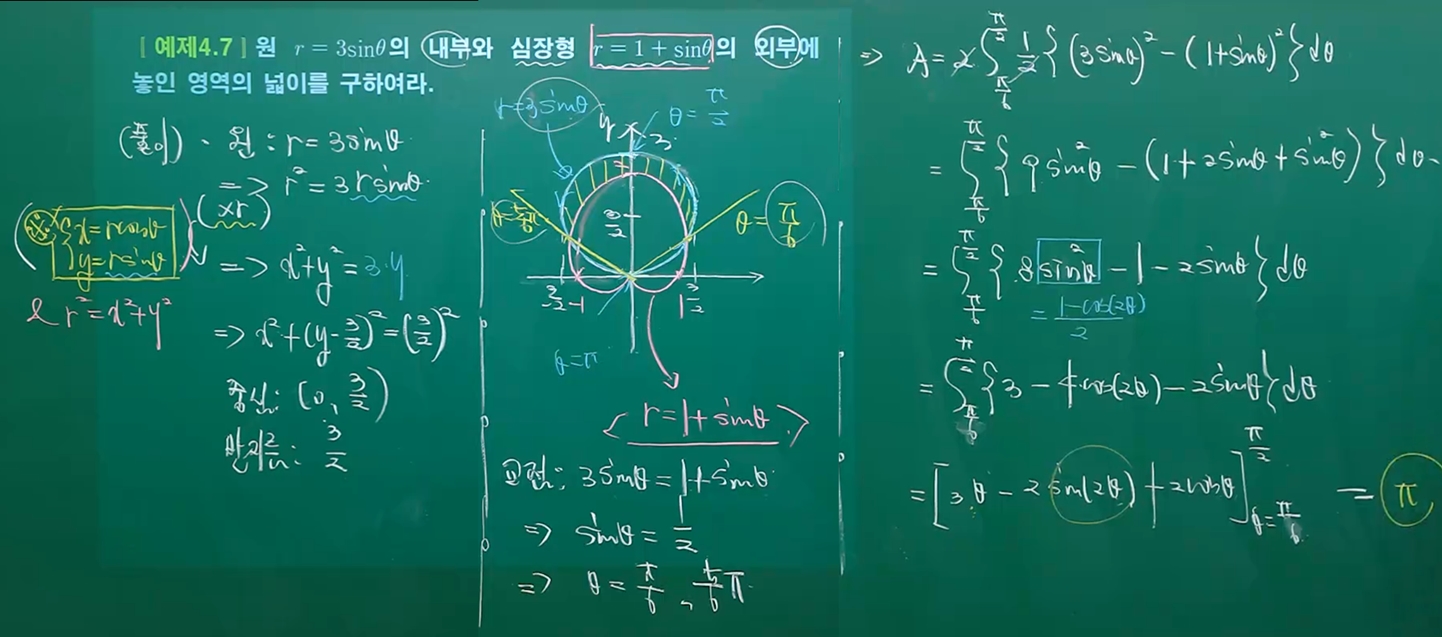 [ 예제4.7 ] 원 r = 3sinθ의 내부와 심장형 r = 1 + sinθ의 외부에
놓인 영역의 넓이를 구하여라.
(풀이) · 원 : r = 3sinθ
=> r² = 3rsinθ
(xr)
※ { x = rcosθ
y = rsinθ
& r² = x² + y²
=> x² + y² = 3·y
=> x² + (y - 3/2)² = (3/2)²
중심 : (0, 3/2)
반지름 : 3/2
r = 3sinθ
θ = π/2
y
3
3/2
θ = 5/6 π
θ = π/6
-3/2 -1 1 3/2
θ = π
r = 1 + sinθ
교점 : 3sinθ = 1 + sinθ
=> sinθ = 1/2
=> θ = π/6 , 5/6 π
=> A = 2 ∫_{π/6}^{π/2} 1/2 { (3sinθ)² - (1+sinθ)² } dθ
= ∫_{π/6}^{π/2} { 9sin²θ - (1 + 2sinθ + sin²θ) } dθ
= ∫_{π/6}^{π/2} { 8sin²θ - 1 - 2sinθ } dθ
= (1-cos(2θ))/2
= ∫_{π/6}^{π/2} { 3 - 4cos(2θ) - 2sinθ } dθ
= [ 3θ - 2sin(2θ) + 2cosθ ]_{θ=π/6}^{π/2} = π